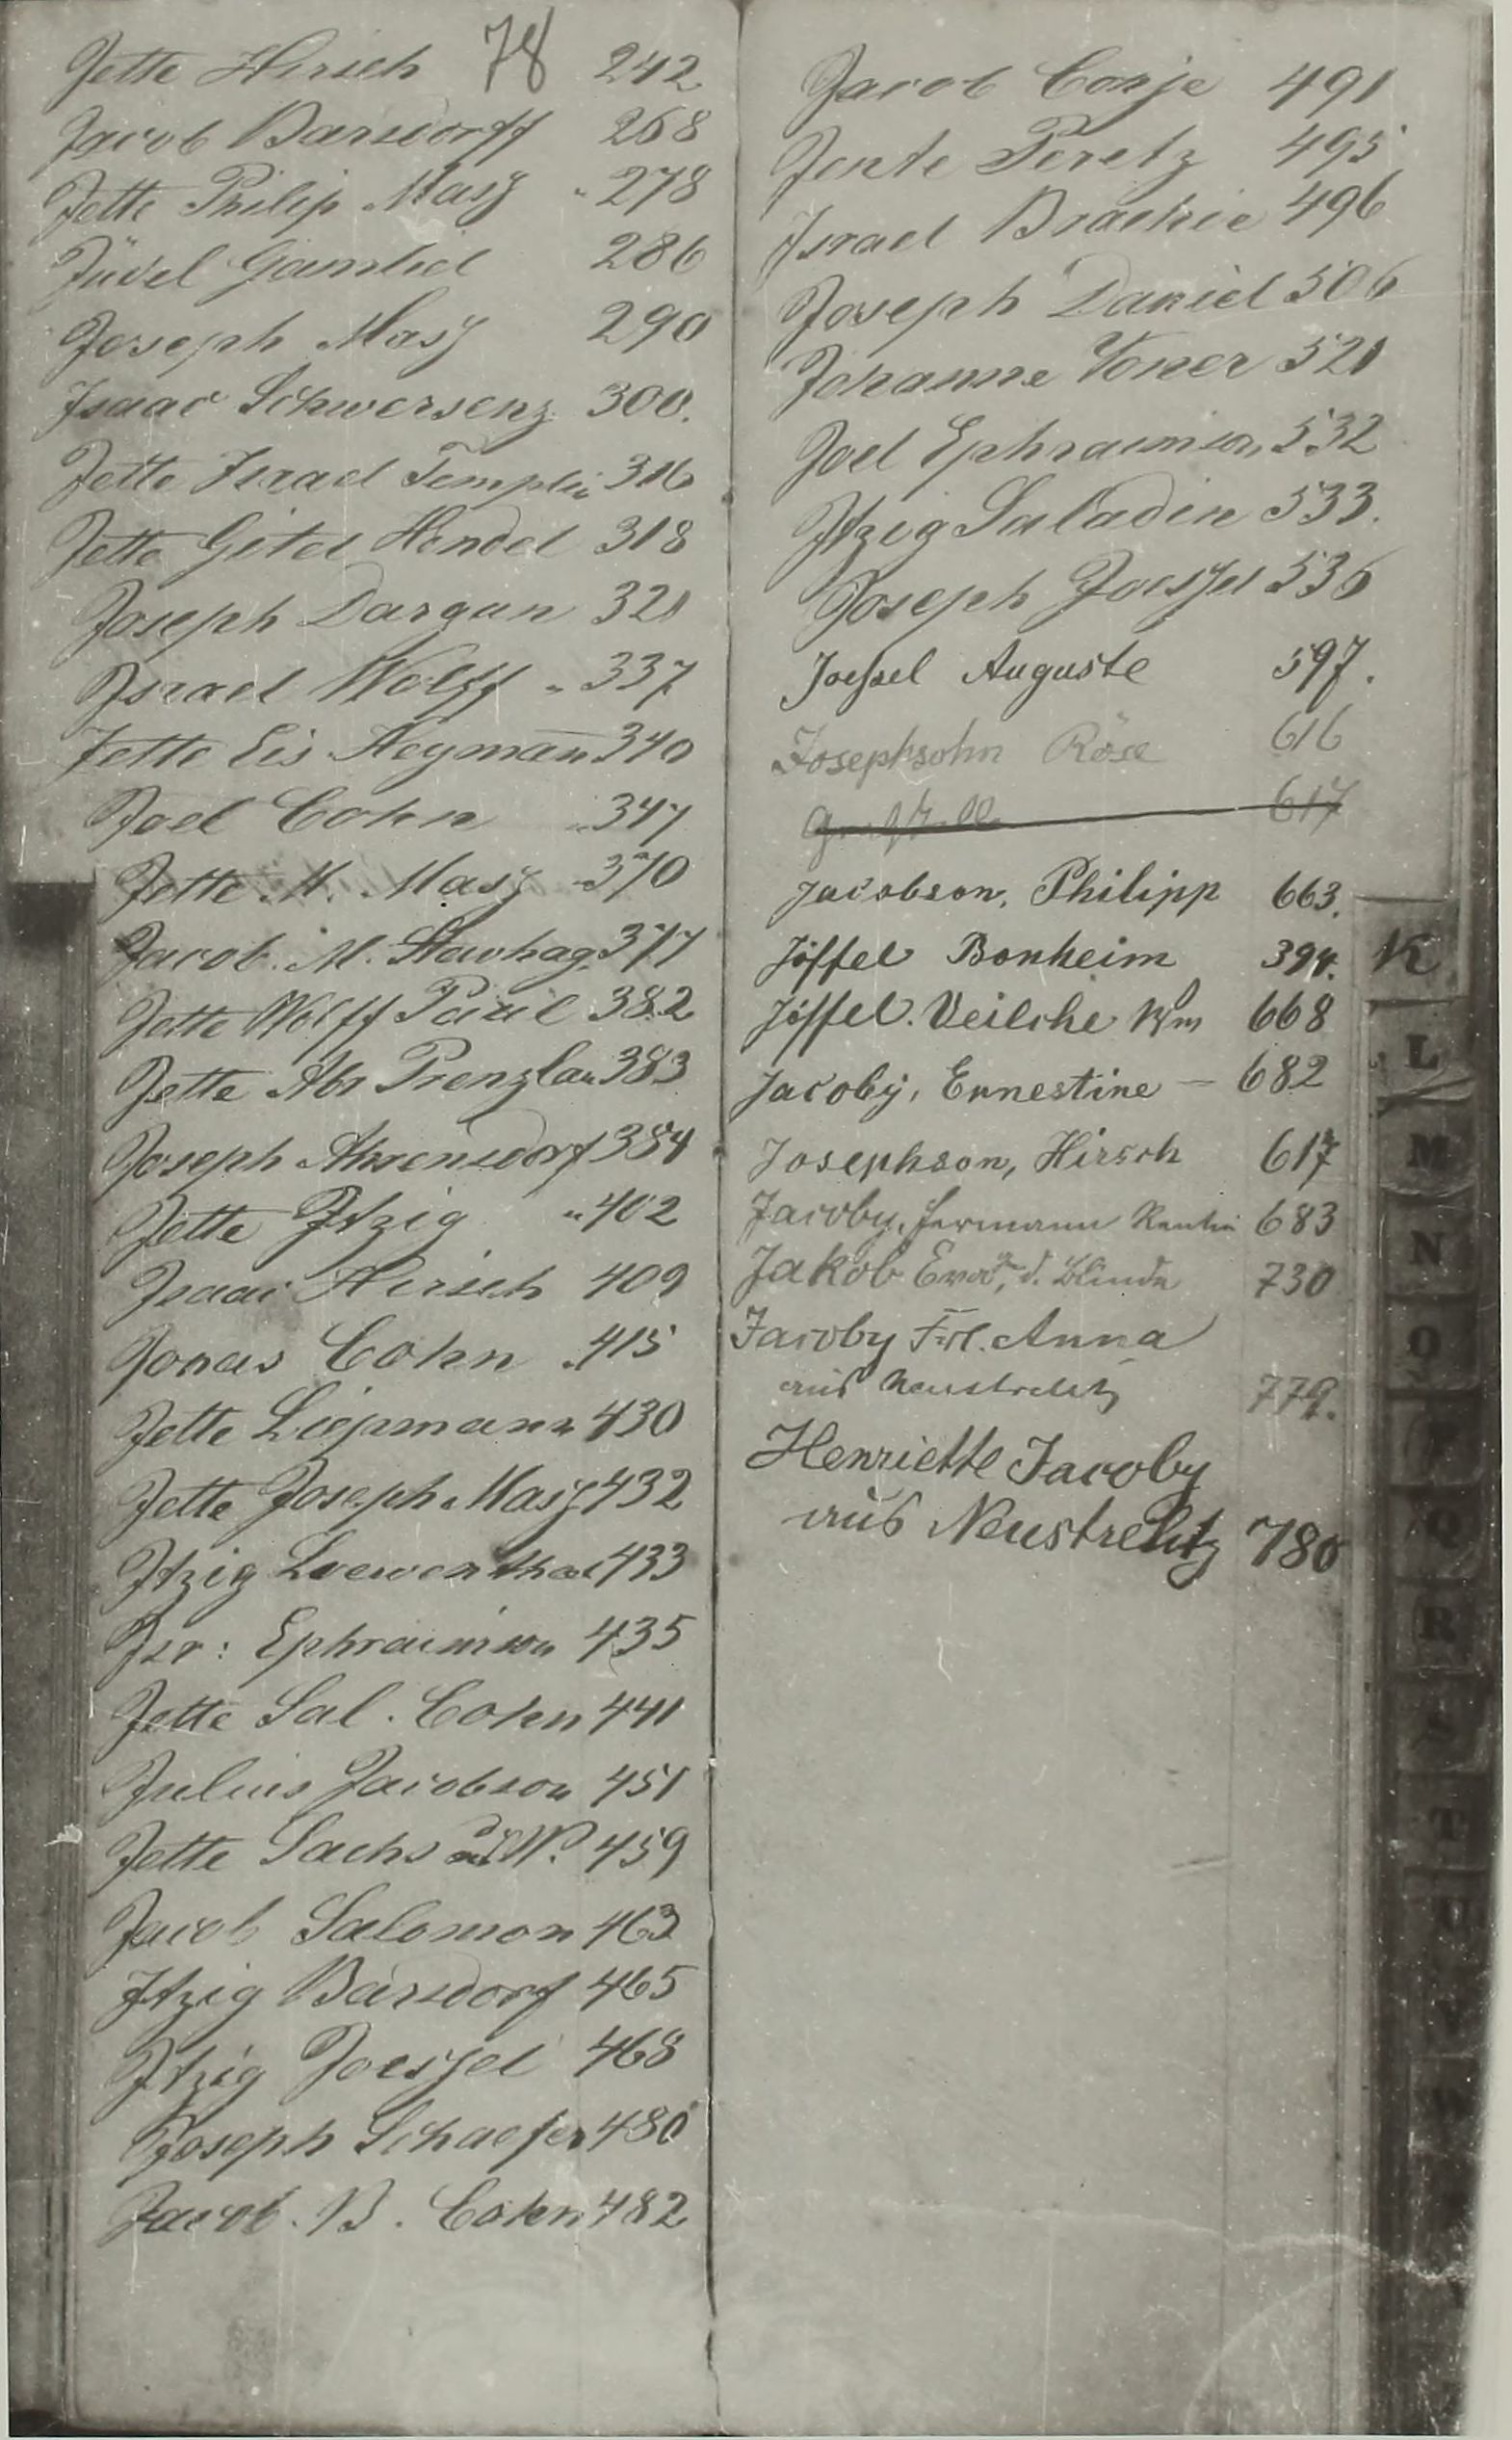 Jette Hirsch 78 242
Jacob Barsdorff 268
Jette Philip Masz " 278
Jüdel Gamliel 286
Joseph Masz 290
Isaac Schwersenz 300.
Jette Israel Templin 316
Jette Gitel Hendel 318
Joseph Dargun 321
Israel Wolff " 337
Jette Eis Heymann 340
Joel Cohn " 347
Jette M. Masz " 370
Jacob. M. 377
Jette Wolff 382
Jette Abr Prenzlau 383
Joseph Ahrensdorf 384
Jette Itzig " 402
Isaac Hirsch 409
Jonas Cohn " 415
Jette Liepmann 430
Jette Joseph Masz 432
Itzig Loewenthal 433
Isr: Ephraimson 435
Jette Sal. Cohn 441
Julius Jacobson 451
Jette Sachs aus W. 459
Jacob Salomon 463
Itzig Barsdorf 465
Itzig Joessel 468
Joseph Schaefer 480
Jacob. B. Cohn 482
Jacob 491
Jente Peretz 495
Israel 496
Joseph Daniel 506
Johanne 521
Joel Ephraimson 532
Itzig Saladin 533.
Joseph Joessel 536
Joessel Auguste 597.
Josephsohn Röse 616
617
Jacobson, Philipp 663.
Jöffel Bonheim 394.
Jöffel. Veilche Wm 668
Jacoby, Ernestine — 682
Josephson, Hirsch 617
Jacoby, Hermann Rentier 683
Jakob Eva, d. Blinde 730
Jacoby Frl. Anna
aus Neustrelitz 779.
Henriette Jacoby
aus Neustrelitz 780
K
L
M
N
O
P
Q
R
S
T
U
V
W